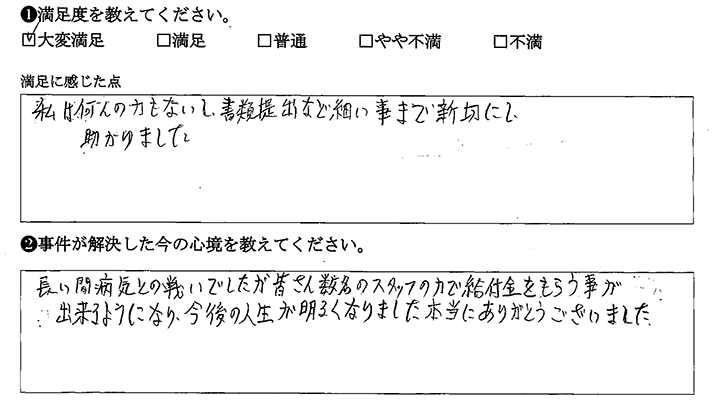 ❶満足度を教えてください。
☑大変満足 □満足 □普通 □やや不満 □不満
満足に感じた点
私は何んの力もないし、書類提出など細い事まで新切にし、
助かりました
❷事件が解決した今の心境を教えてください。
長い間病気との戦いでしたが皆さん数名のスタッフの力で給付金をもらう事が
出来るようになり、今後の人生が明るくなりました。本当にありがとうございました。